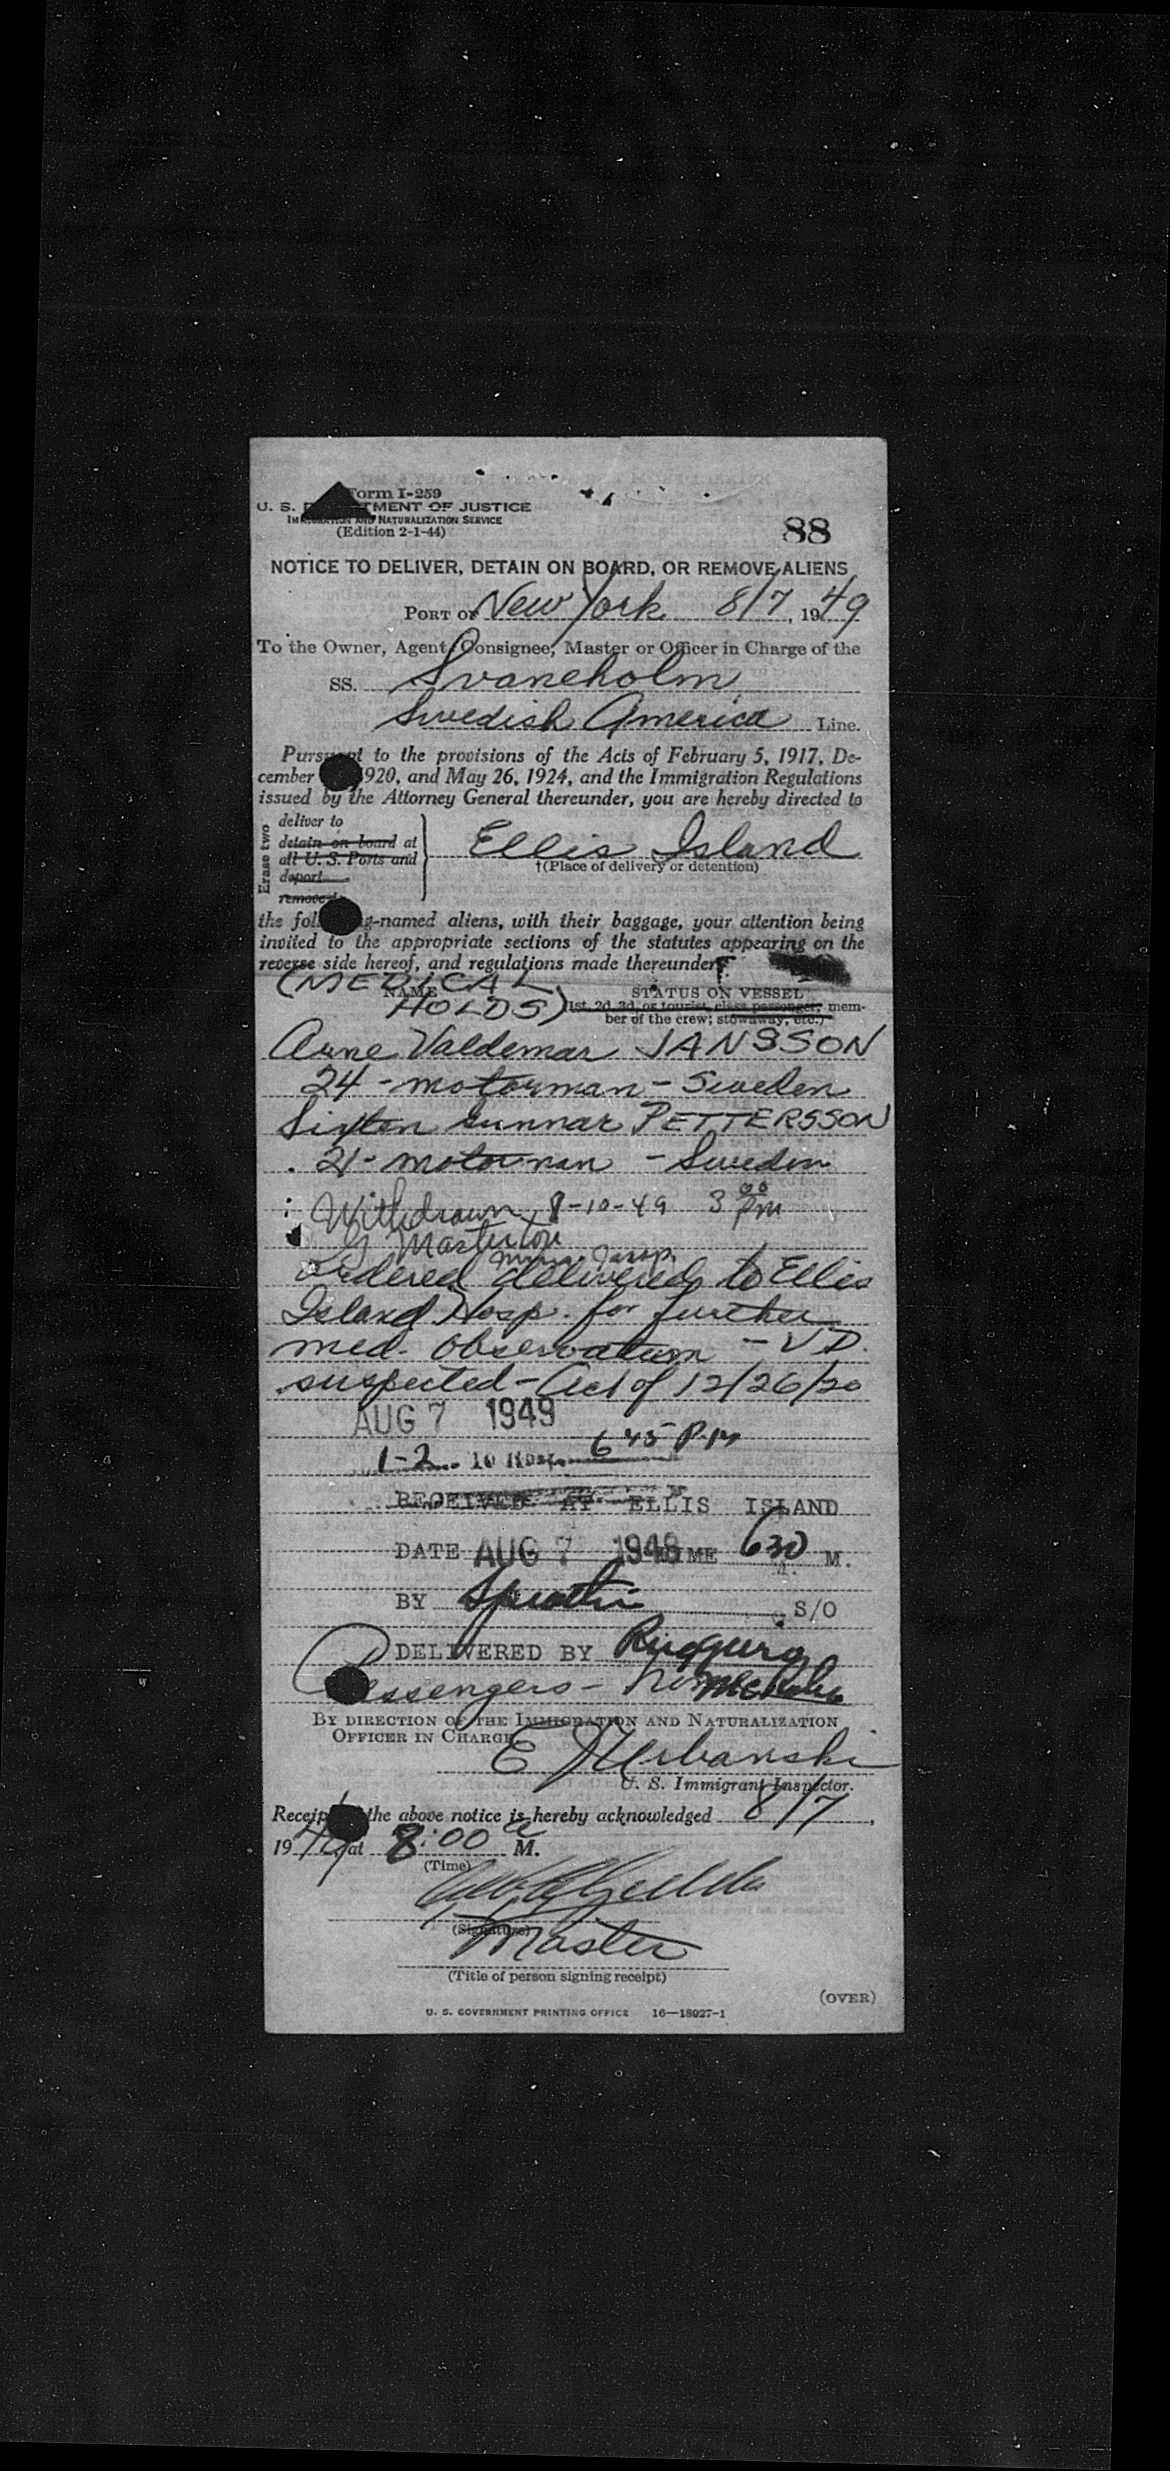 Form I-259
U. S. DEPARTMENT OF JUSTICE
IMMIGRATION AND NATURALIZATION SERVICE
(Edition 2-1-44)
88
NOTICE TO DELIVER, DETAIN ON BOARD, OR REMOVE ALIENS
PORT OF New York 8/7, 1949
To the Owner, Agent, Consignee, Master or Officer in Charge of the
SS. Svaneholm
Swedish America Line.
Pursuant to the provisions of the Acts of February 5, 1917, De-
cember 1920, and May 26, 1924, and the Immigration Regulations
issued by the Attorney General thereunder, you are hereby directed to
Erase two
deliver to
detain on board at
all U. S. Ports and
deport
remove
Ellis Island
†(Place of delivery or detention)
the following-named aliens, with their baggage, your attention being
invited to the appropriate sections of the statutes appearing on the
reverse side hereof, and regulations made thereunder:
(MEDICAL
HOLDS)
NAME
STATUS ON VESSEL
(1st, 2d, 3d, or tourist, class passenger; mem-
ber of the crew; stowaway, etc.)
Arne Valdemar JANSSON
24 - motorman - Sweden
Sixten Gunnar PETTERSSON
21 - motorman - Sweden
Withdrawn 8-10-49 3 00 pm
G Masterton
Ordered delivered to Ellis
Island Hosp. for further
med. observation - VD.
suspected - Act of 12/26/20
AUG 7 1949
1-2 to Hosp. 6 45 P.M
RECEIVED AT ELLIS ISLAND
DATE AUG 7 1949 TIME 630 M.
BY S/O
DELIVERED BY Ruggiero
Passengers - No
BY DIRECTION OF THE IMMIGRATION AND NATURALIZATION
OFFICER IN CHARGE
E J Urbanski
U. S. Immigrant Inspector.
Receipt of the above notice is hereby acknowledged 8/7,
1949 at 8:00 a M.
(Time)
(Signature)
Master
(Title of person signing receipt)
(OVER)
U. S. GOVERNMENT PRINTING OFFICE 16—18027-1